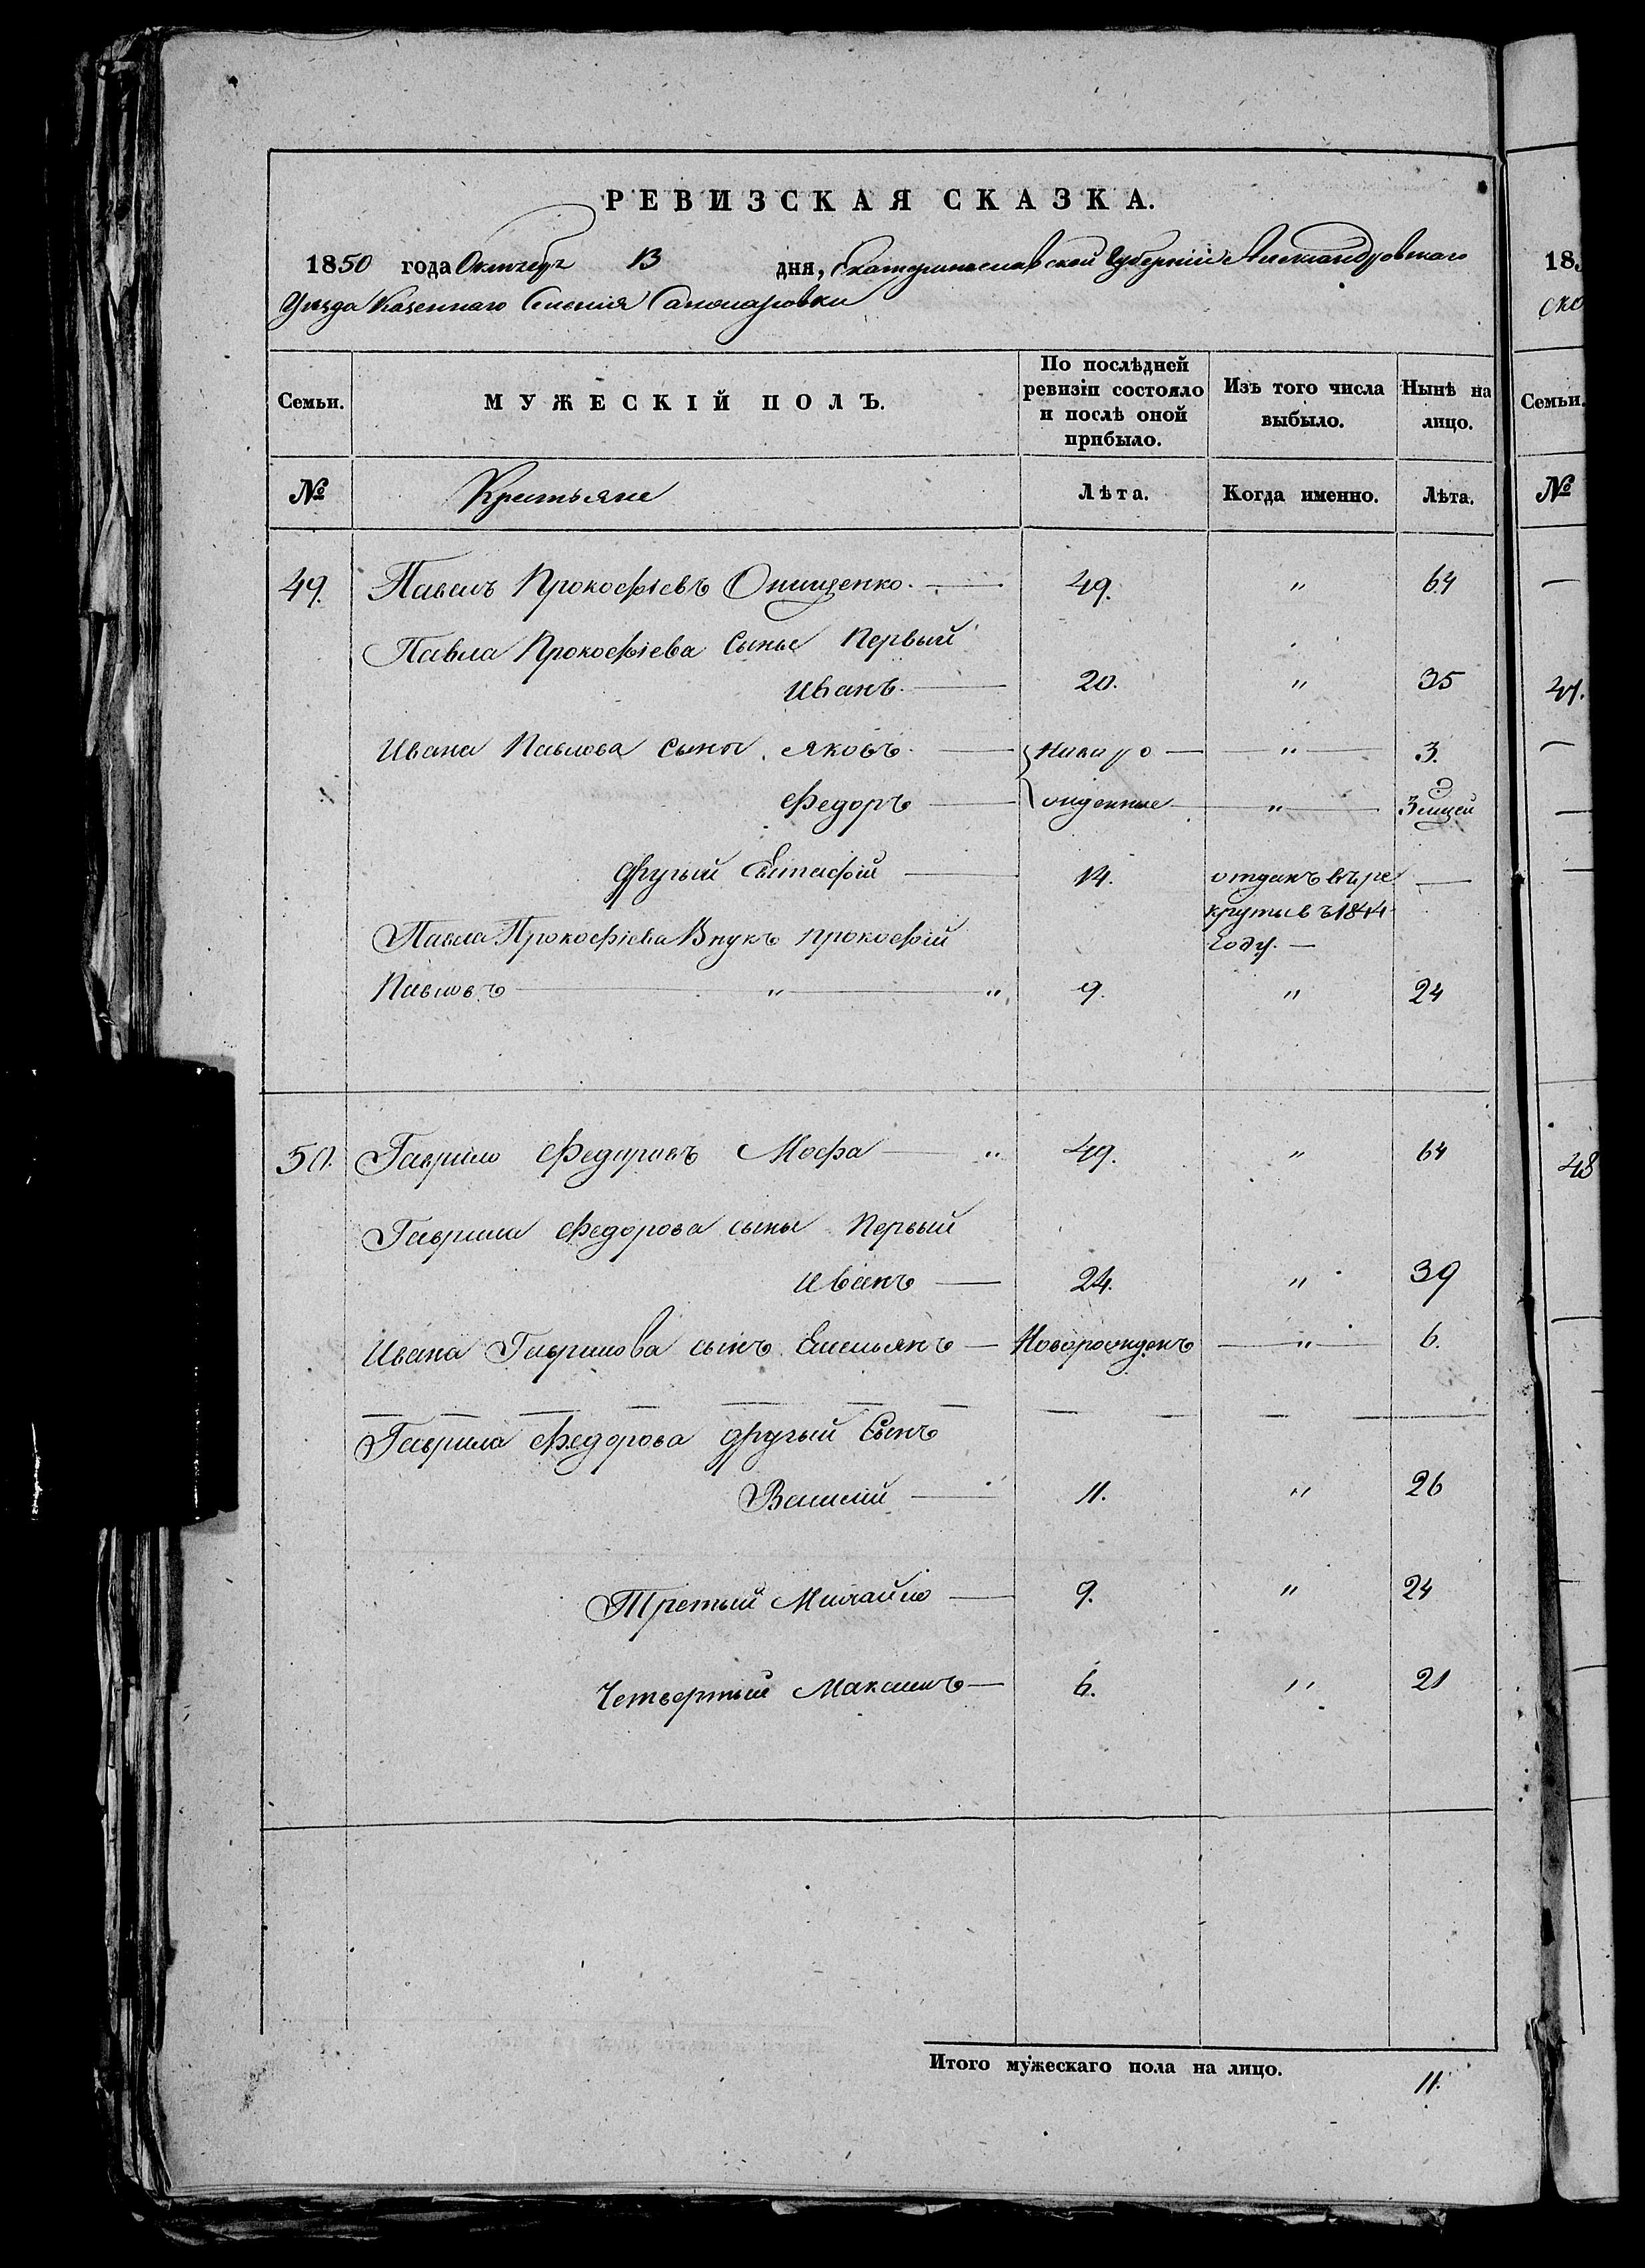 РЕВИЗСКАЯ СКАЗКА.
1850 года Октября 13 дня, Екатеринославской Губерніи Александровскаго
Уезда Казеннаго Селенія
Семьи.
МУЖЕСКІЙ ПОЛЪ.
По послѣдней ревизіи состояло и послѣ оной прибыло.
Изъ того числа выбыло.
Нынѣ на лицо.
№ Крестьяне Лѣта. Когда именно. Лѣта.
49. Павелъ Прокофіевъ Онищенко. — 49. " 64
Павла Прокофіева Сынье Первый
Иванъ. — 20. " 35
Ивана Павлова сыны Яковъ — Новоро — " — 3.
Федоръ — жденные — " — 3 месцей
Другый Евстафій — 14. отданъ въ ре —
круты въ 1844
Павла Прокофіева Внукъ Прокофій году. —
Павловъ — " — " 9. " 24
50. Гаврило Федоровъ Мофа — " 49. " 64
Гаврила Федорова сыны Первый
Иванъ — 24. " 39
Ивана Гаврилова сынъ Емельянъ — Новорожденъ — " — 6.
Гаврила Федорова другый Сынъ
Василій — 11. " 26
Третый Михайло — 9. " 24
Четвертый Максимъ — 6. " 21
Итого мужескаго пола на лицо. 11.
185
Семьи.
№
47.
48